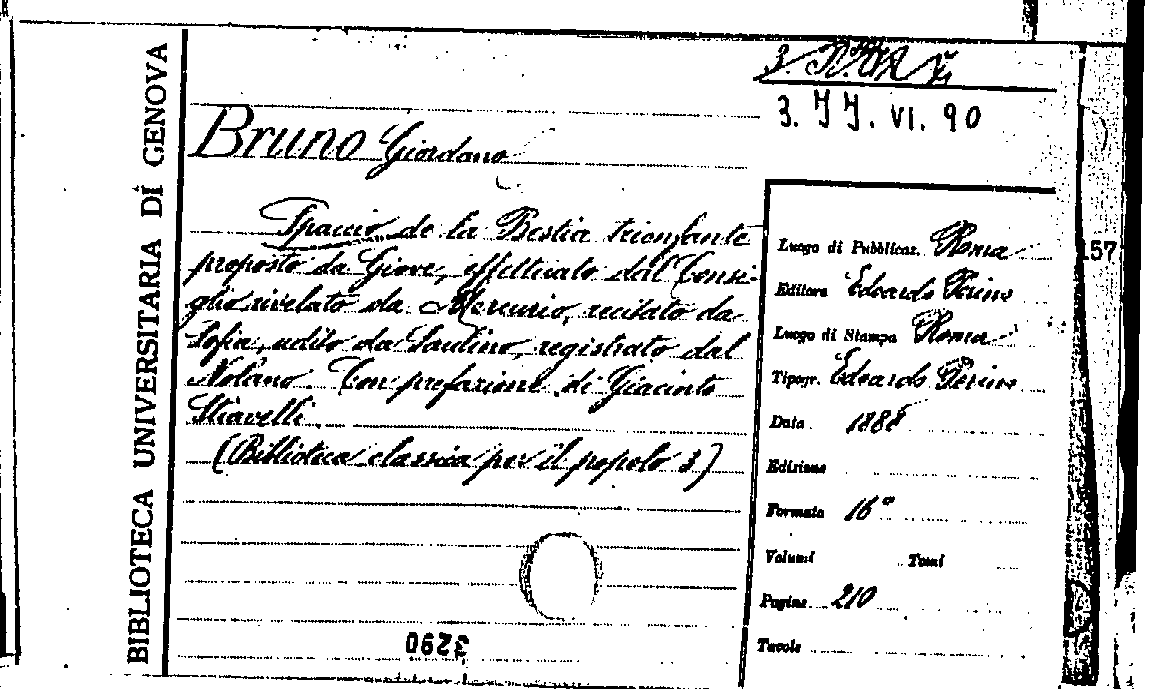 BIBLIOTECA UNIVERSITARIA DI GENOVA
3. JJ. VI. 90
Bruno Giordano
Spaccio de la Bestia trionfante
proposto da Giove, effettuato dal Consi-
glio rivelato da Mercurio, recitato da
Sofia, udito da Saulino, registrato dal
Nolano Con prefazione di Giacinto
Stiavelli.
(Biblioteca classica per il popolo 3)
3290
Luogo di Pubblicaz. Roma
Editore Edoardo Perino
Luogo di Stampa Roma
Tipogr. Edoardo Perino
Data 1888
Edizione
Formato 16°
Volumi Tomi
Pagine 210
Tavole
157